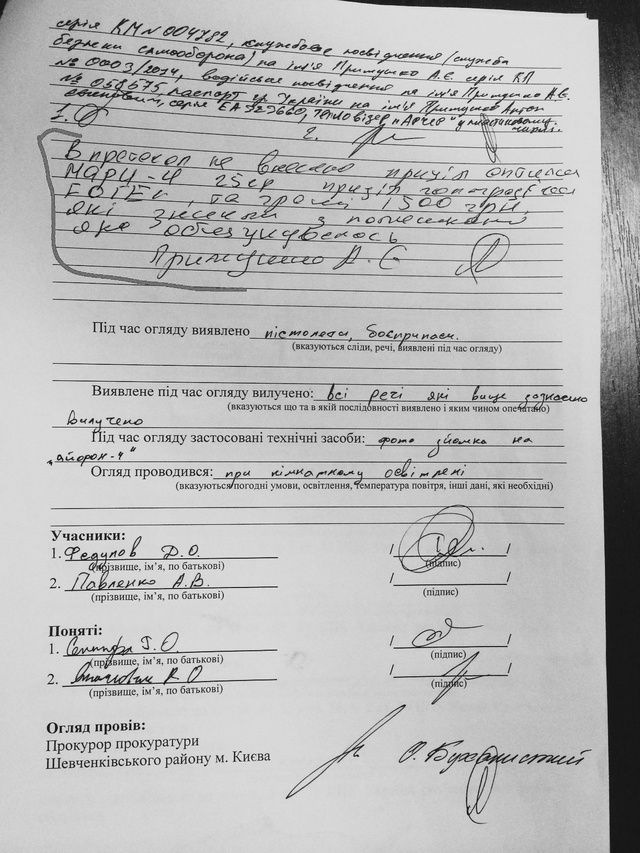 серія КМ № 004782, службове посвідчення (служба
безпеки самооборона) на ім'я Примушко А.Є. серія КП
№ 0003/2014, водійське посвідчення на ім'я Примушко А.Є.
№ 058575 паспорт гр. України на ім'я Примушко Антон
серія ЕА 929660, тепловізор
1.
2.
В протокол не внесено приціл оптичний
МАРЧ-4 25ср приціл голографічний
ЕОТЕК, та гроші 1500 грн.
які зникли з помешкання
яке обшукувалось
Примушко А. Є
Під час огляду виявлено пістолети, боєприпаси.
(вказуються сліди, речі, виявлені під час огляду)
Виявлене під час огляду вилучено: всі речі які вище зазначено
(вказуються що та в якій послідовності виявлено і яким чином опечатано)
вилучено
Під час огляду застосовані технічні засоби: фото зйомка на
"айфон-4"
Огляд проводився: при кімнатному освітлені
(вказуються погодні умови, освітлення, температура повітря, інші дані, які необхідні)
Учасники:
1. Федулов Д.О. / /
(прізвище, ім'я, по батькові) (підпис)
2. Павленко А.В. / /
(прізвище, ім'я, по батькові) (підпис)
Поняті:
1. Г.О. / /
(прізвище, ім'я, по батькові) (підпис)
2. К О / /
(прізвище, ім'я, по батькові) (підпис)
Огляд провів:
Прокурор прокуратури
Шевченківського району м. Києва
О.